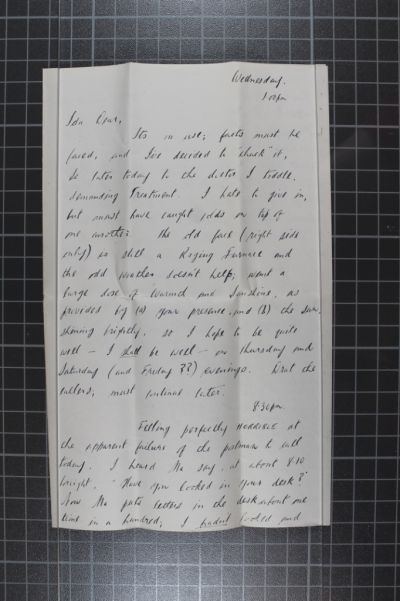 Wednesday.
1.00pm
Ida Dear,
Its no use; facts must be
faced, and I've decided to "chuck" it,
So later today to the doctor I toddle,
demanding Treatment. I hate to give in,
but must have caught colds on top of
one another. The old face (right side
only) is still a Raging Furnace and
the old weather doesn't help; want a
large dose of warmth and Sunshine, as
provided by (A) your presence, and (B) the Sun
shining brightly. So I hope to be quite
well - I shall be well - on Thursday and
Saturday (and Friday ??) evenings. Drat the
callers; must continue later.
8.30pm.
Felling perfectly HORRIBLE at
the apparent failure of the postman to call
today. I heard Ma say, at about 8.10
tonight, "Have you looked in your desk?"
Now Ma puts letters in the desk about one
time in a hundred; I hadn't looked and